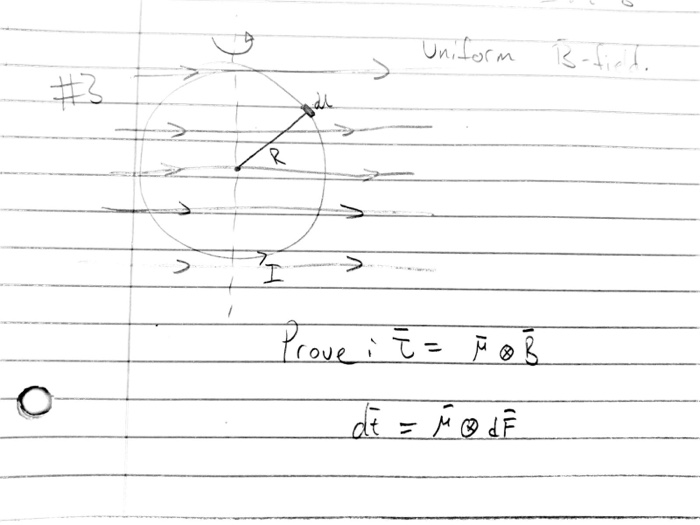 Uniform B̄-field.
#3
dl
R
I
Prove : τ̄ = μ̄ ⊗ B̄
dt̄ = μ̄ ⊗ dF̄